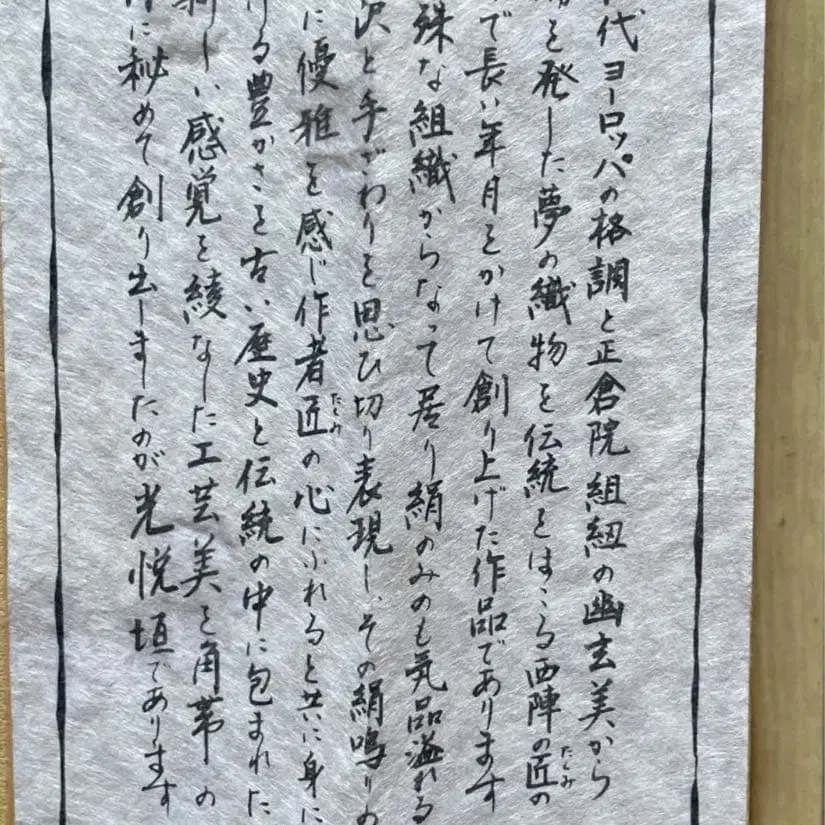 代ヨーロッパの格調と正倉院組紐の幽玄美から
を発した夢の織物を伝統とほこる西陣の匠の
たくみ
で長い年月をかけて創り上げた作品であります
殊な組織からなって居り絹のみのも気品溢れる
沢と手ざわりを思ひ切り表現し、その絹鳴りの
に優雅を感じ作者匠の心にふれると共に身に
たくみ
ける豊かさを古い歴史と伝統の中に包まれた
新しい感覚を綾なした工芸美を角帯の
に秘めて創り出しましたのが光悦垣であります